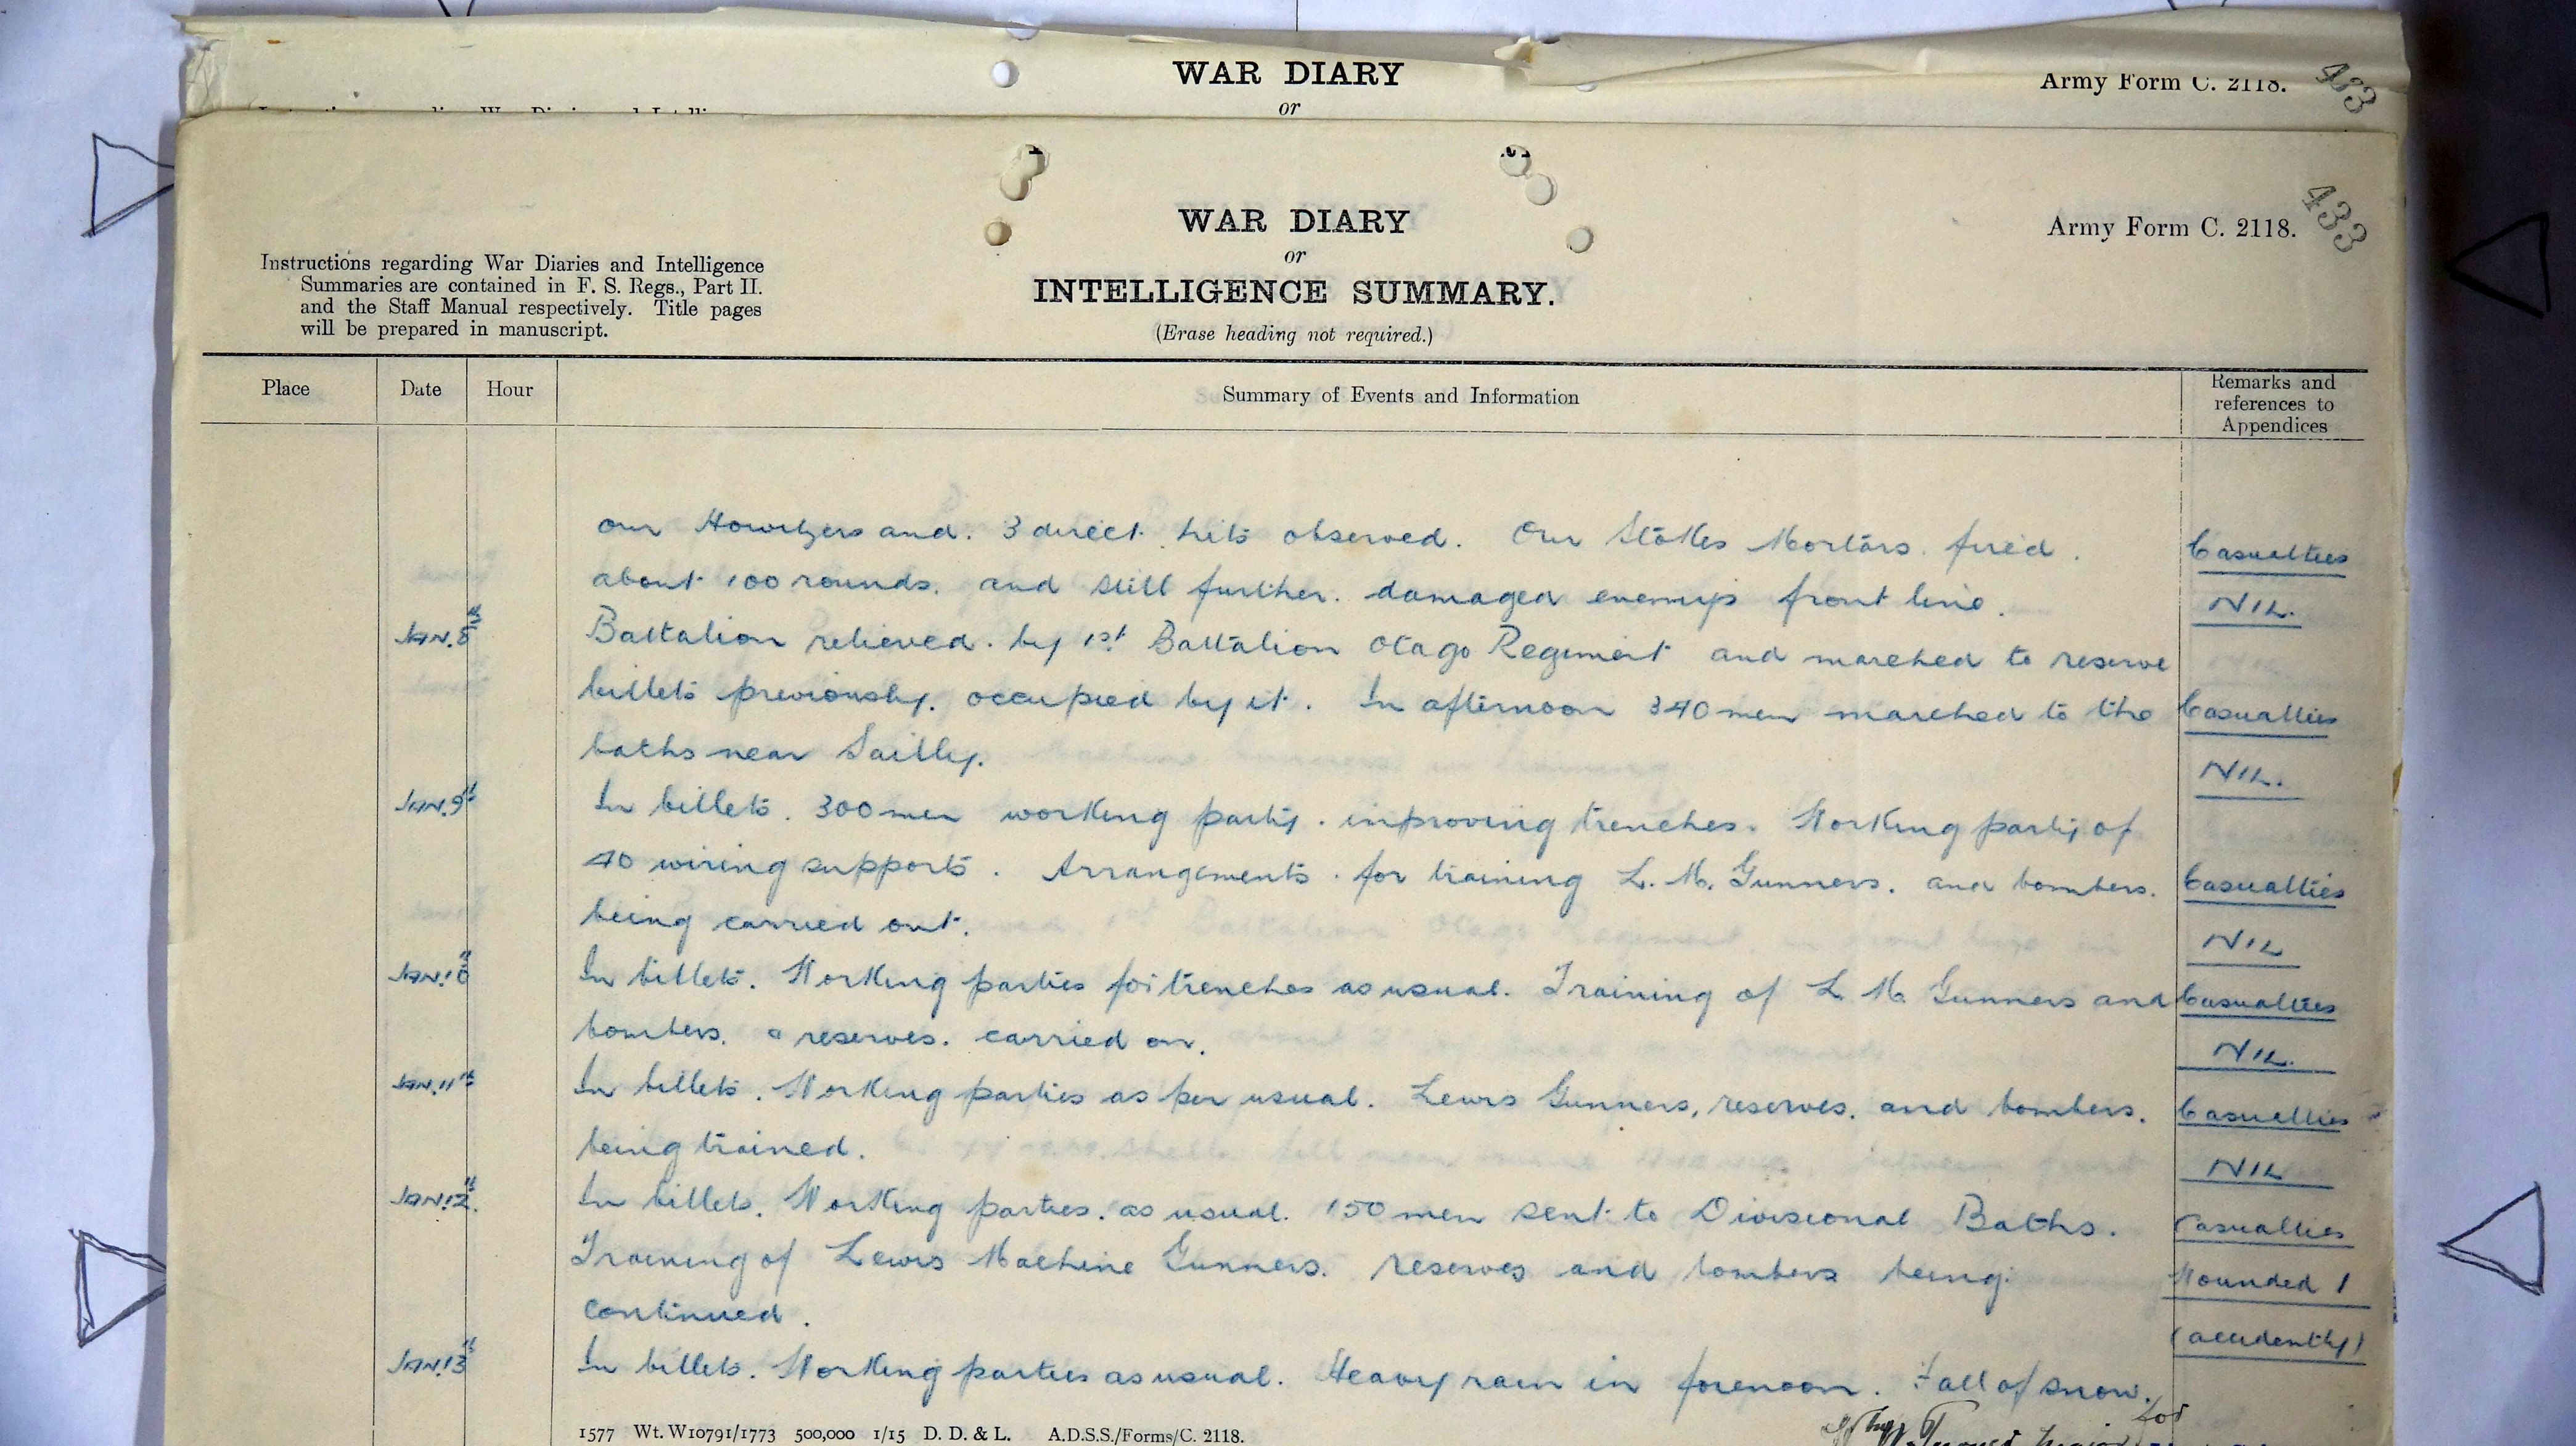 WAR DIARY
or
Army Form C. 2118.
433
WAR DIARY
or
INTELLIGENCE SUMMARY.
(Erase heading not required.)
Army Form C. 2118.
433
Instructions regarding War Diaries and Intelligence
Summaries are contained in F. S. Regs., Part II.
and the Staff Manual respectively. Title pages
will be prepared in manuscript.
Place Date Hour Summary of Events and Information Remarks and references to Appendices
our Howitzers and. 3 direct hits observed. Our Stokes Mortars fired. Casualties
about 100 rounds. and still further. damaged enemy's front line. NIL.
JAN. 8th Battalion relieved. by 1st Battalion Otago Regiment and marched to reserve
billets previously. occupied by it. In afternoon 340 men marched to the Casualties
baths near Sailly. NIL.
JAN. 9th In billets. 300 men working party. improving trenches. Working party of
40 wiring supports. Arrangements. for training L. M. Gunners. and bombers. Casualties
being carried out. NIL
JAN. 10th In billets. Working parties for trenches as usual. Training of L. M. Gunners and Casualties
bombers. & reserves. carried on. NIL.
JAN. 11th In billets. Working parties as per usual. Lewis Gunners, reserves. and bombers. Casualties
being trained. NIL
JAN. 12th In billets. Working parties. as usual. 150 men sent to Divisional Baths. Casualties
Training of Lewis Machine Gunners. reserves and bombers being. Wounded 1
continued. (accidently)
JAN. 13th In billets. Working parties as usual. Heavy rain in forenoon. Fall of snow.
for
Major
1577 Wt. W10791/1773 500,000 1/15 D. D. & L. A.D.S.S./Forms/C. 2118.